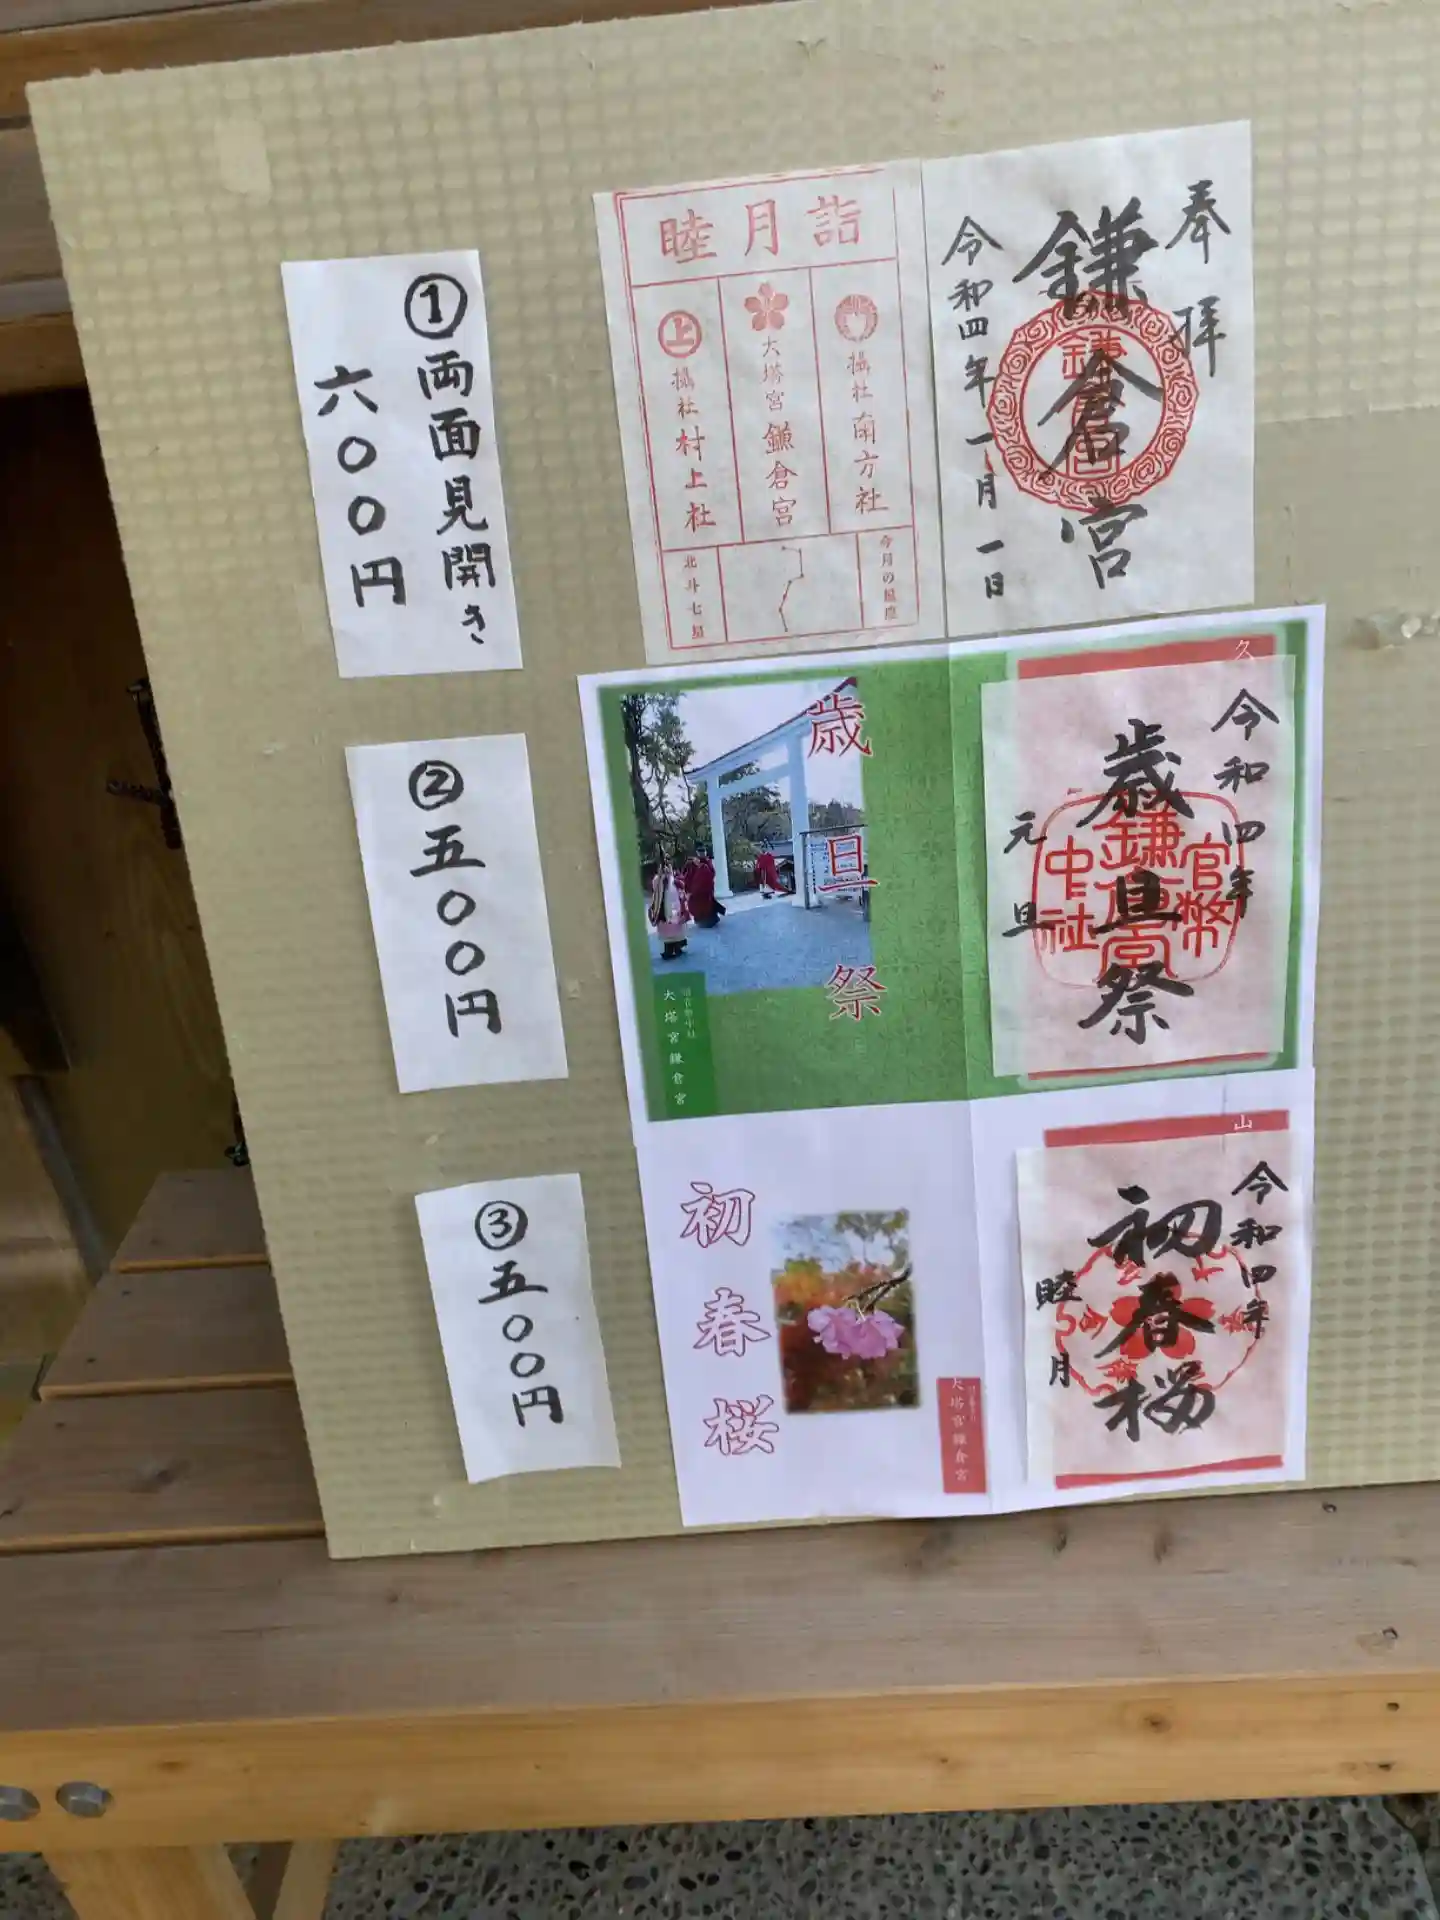 ①両面見開き
六〇〇円
睦月詣
攝社 南方社
大塔宮 鎌倉宮
上
攝社 村上社
今月の星座
北斗七星
奉拝
鎌倉宮
令和四年一月一日
②五〇〇円
歳旦祭
大塔宮鎌倉宮
久
令和四年
歳旦祭
元旦
官幣
鎌倉宮
中社
③五〇〇円
初春桜
大塔宮鎌倉宮
山
令和四年
初春桜
睦月